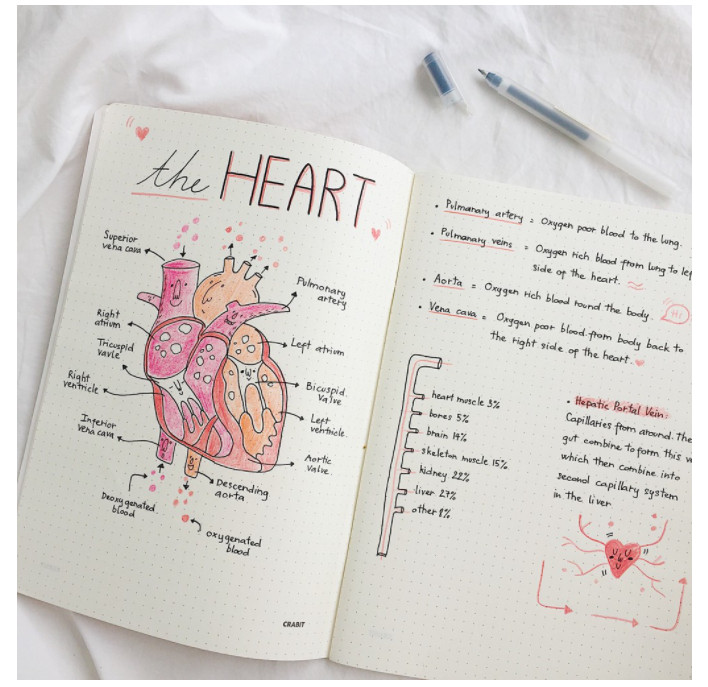 the HEART
Superior
vena cava
Pulmonary
artery
Right
atrium
Left atrium
Tricuspid
vavle
Bicuspid
Valve
Right
ventricle
Left
ventricle
Inferior
vena cava
Aortic
valve.
Descending
aorta
Deoxygenated
blood
oxygenated
blood
CRABIT
• Pulmanary artery = Oxygen poor blood to the lung.
• Pulmanary veins = Oxygen rich blood from lung to lef
side of the heart.
• Aorta = Oxygen rich blood round the body.
Hi
• Vena cava = Oxygen poor blood from body back to
the right side of the heart.
heart muscle 3%
bones 5%
brain 14%
skeleton muscle 15%
kidney 22%
liver 27%
other 8%
• Hepatic Portal Vein:
Capillaries from around. The
gut combine to form this v
which then combine into
second capillary system
in the liver